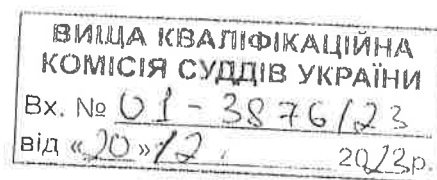 ВИЩА КВАЛІФІКАЦІЙНА
КОМІСІЯ СУДДІВ УКРАЇНИ
Вх. № 01-3876/23
від «20» 12. 2023р.